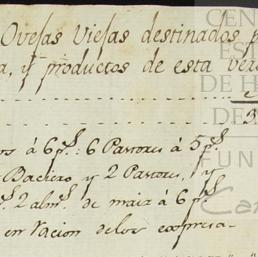 Ovejas Viejas destinadas p
a, y productos de esta Ve
os á 6 p.s: 6 Pastores á 5 p.s
Baciero y 2 Pastores, y
2 alm.s de maiz á 6 p.s
en racion delos expresa-
CEN
ES
DE H
DE
FUN
Ca